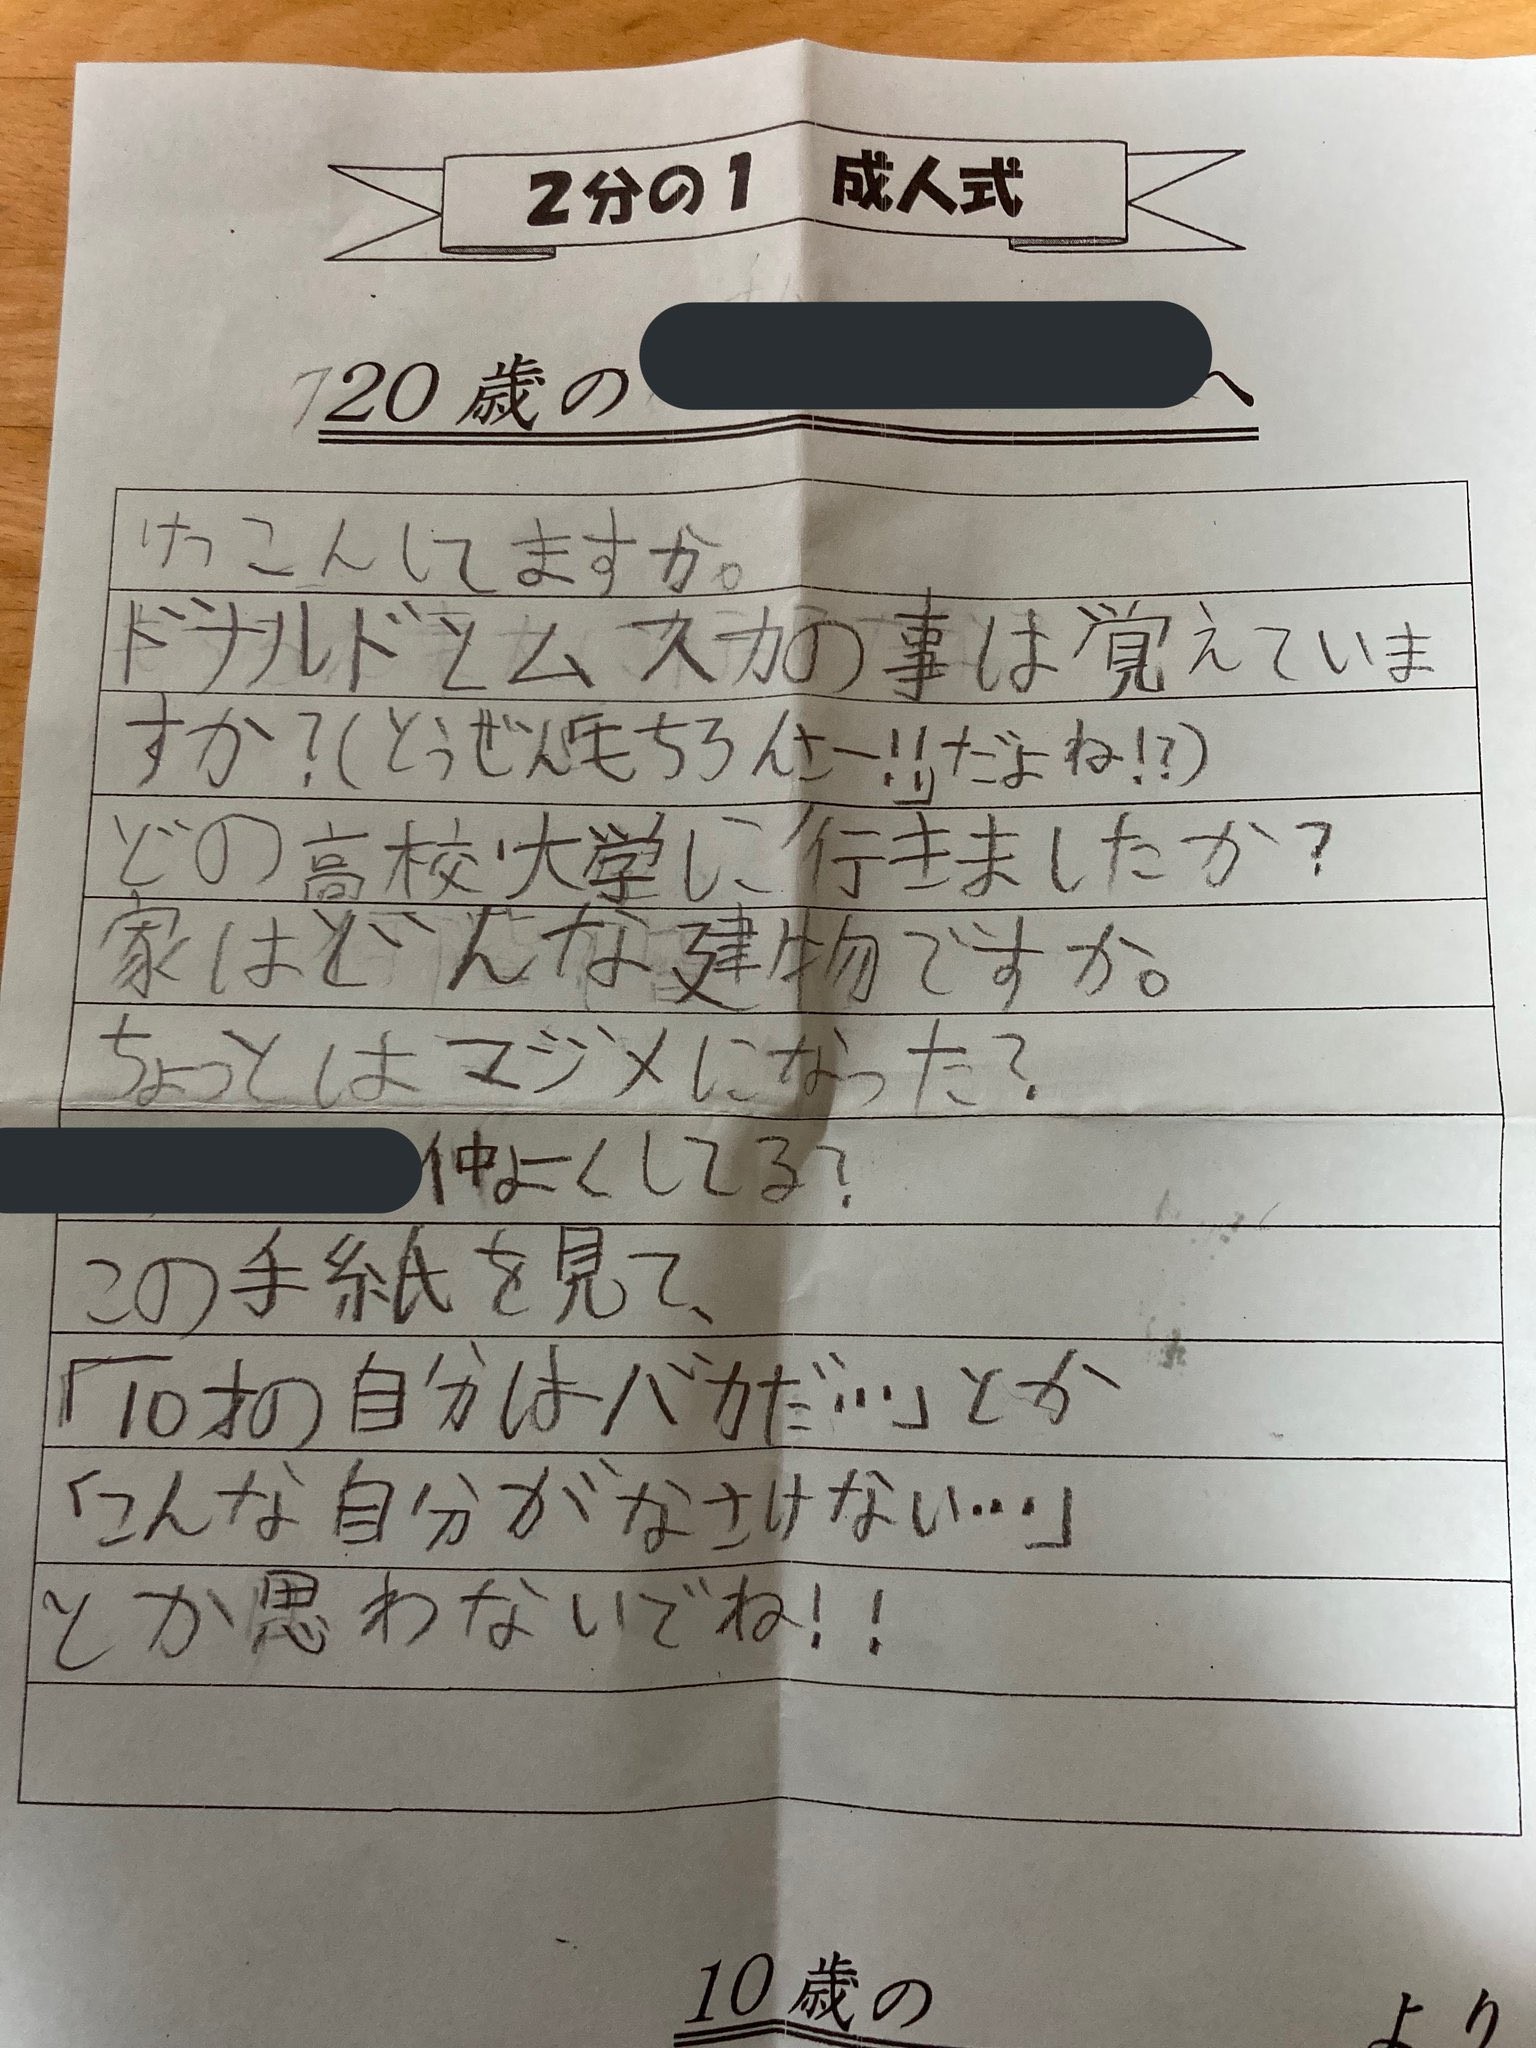 2分の1 成人式
20歳の
へ
けっこんしてますか。
ドナルドとムスカの事は覚えていま
すか?(とうぜん「もちろんさー!!」だよね!?)
どの高校・大学に行きましたか?
家はどんな建物ですか。
ちょっとはマジメになった?
仲よくしてる?
この手紙を見て、
「10才の自分はバカだ…」とか
「こんな自分がなさけない…」
とか思わないでね!!
10歳の より